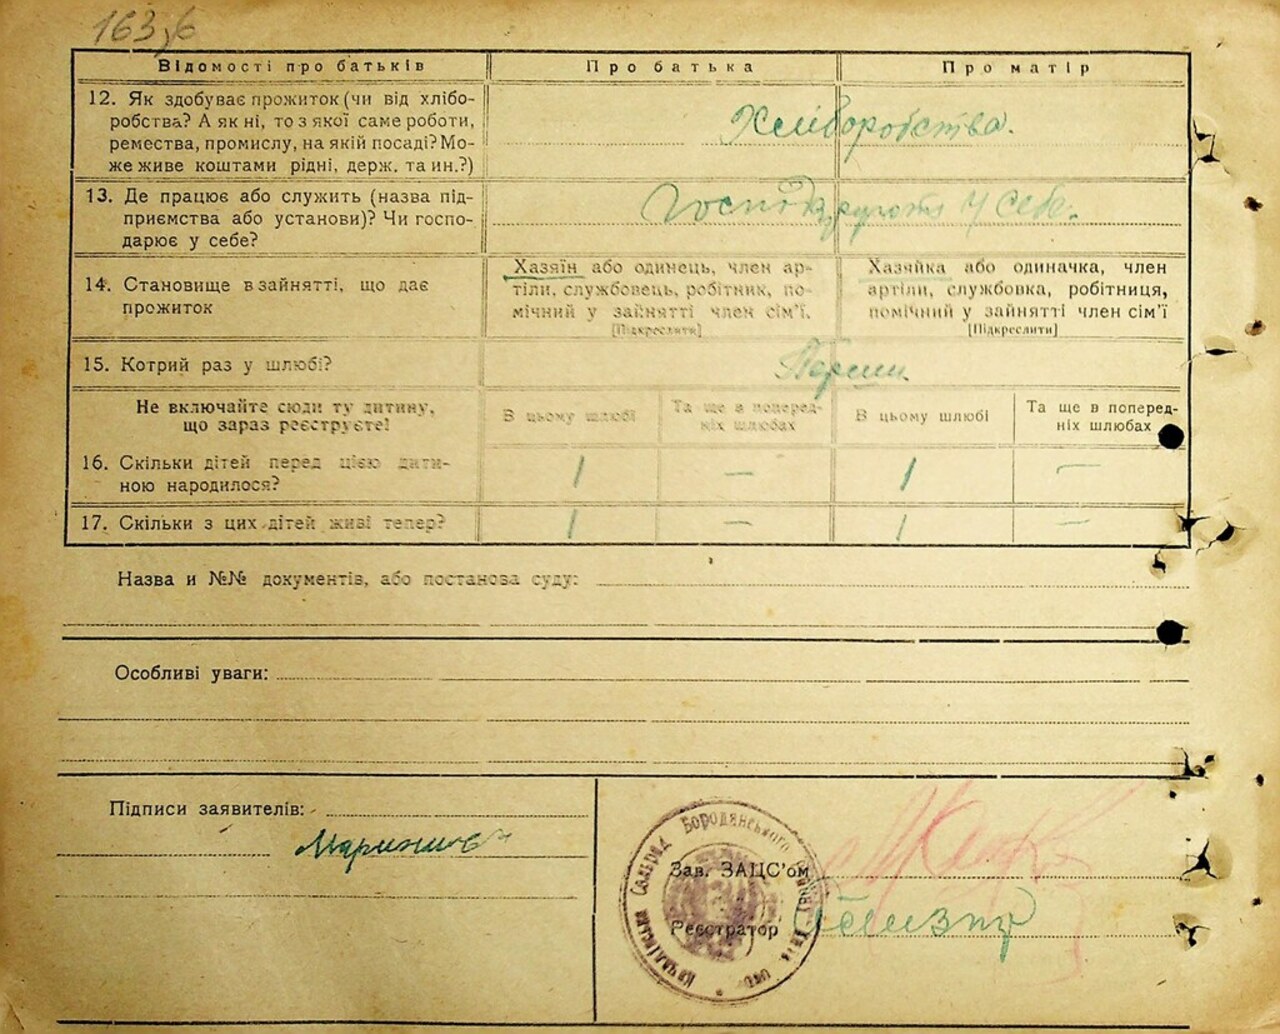 163зб
Відомості про батьків
Про батька
Про матір
12. Як здобуває прожиток (чи від хлібо-
робства? А як ні, то з якої саме роботи,
ремества, промислу, на якій посаді? Мо-
же живе коштами рідні, держ. та ин.?)
Хліборобства.
13. Де працює або служить (назва під-
приємства або установи)? Чи госпо-
дарює у себе?
у себе.
14. Становище в зайнятті, що дає
прожиток
Хазяїн або одинець, член ар-
тіли, службовець, робітник, по-
мічний у зайнятті член сім'ї.
[Підкреслити]
Хазяйка або одиначка, член
артіли, службовка, робітниця,
помічний у зайнятті член сім'ї
[Підкреслити]
15. Котрий раз у шлюбі?
Не включайте сюди ту дитину,
що зараз реєструєте!
В цьому шлюбі
Та ще в поперед-
ніх шлюбах
В цьому шлюбі
Та ще в поперед-
ніх шлюбах
16. Скільки дітей перед цією дити-
ною народилося?
1 — 1 —
17. Скільки з цих дітей живі тепер?
1 — 1 —
Назва и №№ документів, або постанова суду:
Особливі уваги:
Підписи заявителів:
Бородянського
Сельрад
Зав. ЗАЦС'ом
Реєстратор